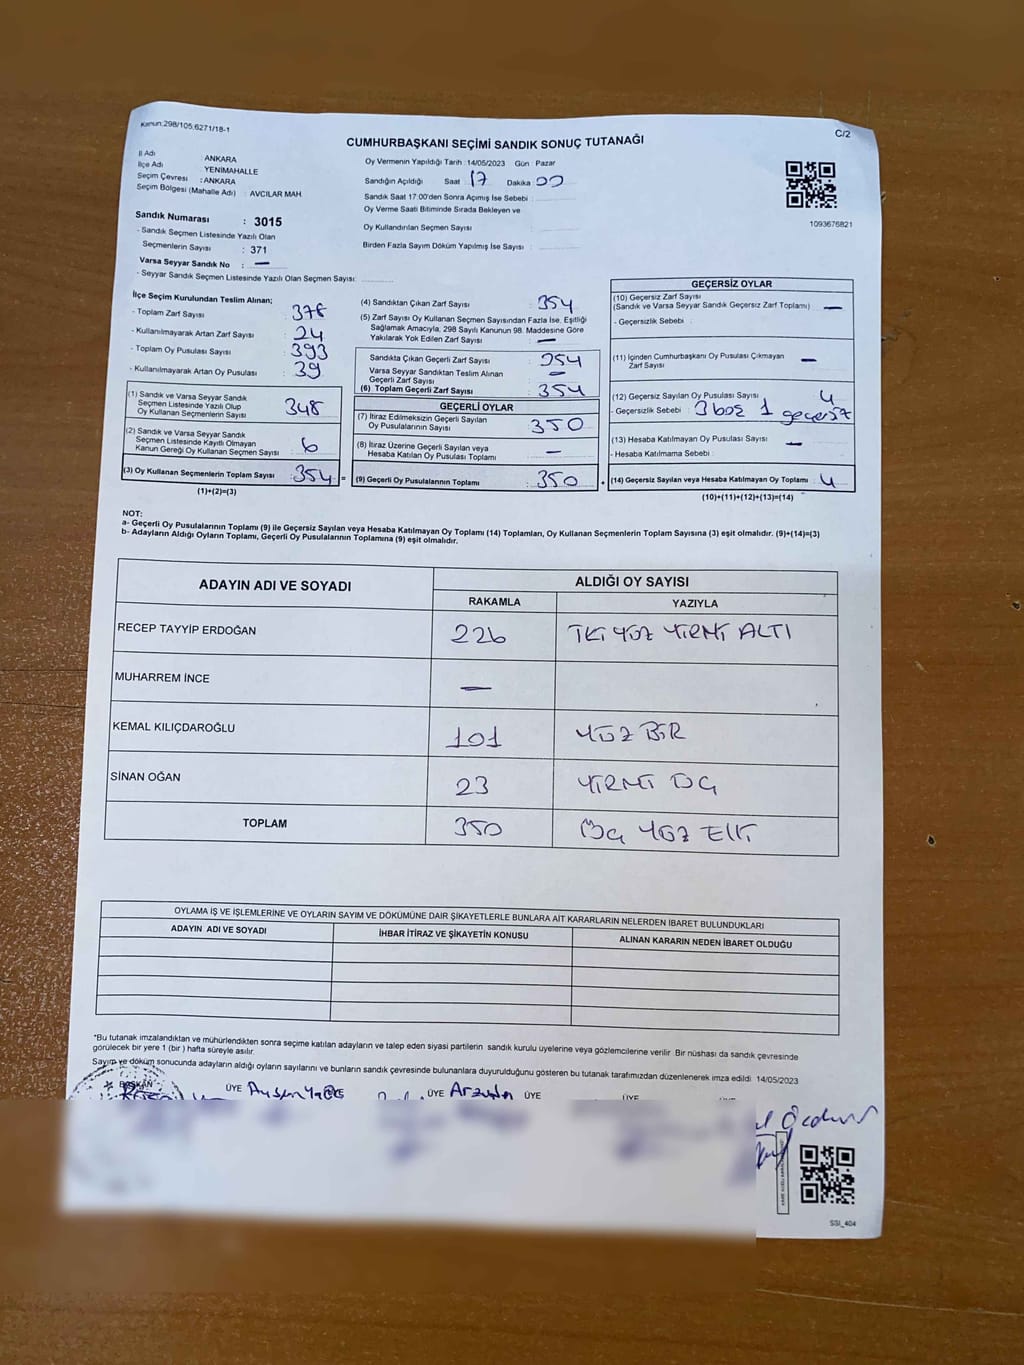 Kanun:298/105;6271/18-1
C/2
CUMHURBAŞKANI SEÇİMİ SANDIK SONUÇ TUTANAĞI
İl Adı : ANKARA
İlçe Adı YENİMAHALLE
Seçim Çevresi : ANKARA
Seçim Bölgesi (Mahalle Adı) : AVCILAR MAH.
Sandık Numarası : 3015
- Sandık Seçmen Listesinde Yazılı Olan
Seçmenlerin Sayısı : 371
Varsa Seyyar Sandık No : —
- Seyyar Sandık Seçmen Listesinde Yazılı Olan Seçmen Sayısı:
Oy Vermenin Yapıldığı Tarih :14/05/2023 Gün : Pazar
Sandığın Açıldığı Saat : 17 Dakika : 00
Sandık Saat 17:00'den Sonra Açılmış İse Sebebi :
Oy Verme Saati Bitiminde Sırada Bekleyen ve
Oy Kullandırılan Seçmen Sayısı :
Birden Fazla Sayım Döküm Yapılmış İse Sayısı :
1093676821
İlçe Seçim Kurulundan Teslim Alınan;
- Toplam Zarf Sayısı : 378
- Kullanılmayarak Artan Zarf Sayısı : 24
- Toplam Oy Pusulası Sayısı : 393
- Kullanılmayarak Artan Oy Pusulası : 39
(1) Sandık ve Varsa Seyyar Sandık
Seçmen Listesinde Yazılı Olup
Oy Kullanan Seçmenlerin Sayısı : 348
(2) Sandık ve Varsa Seyyar Sandık
Seçmen Listesinde Kayıtlı Olmayan
Kanun Gereği Oy Kullanan Seçmen Sayısı : 6
(3) Oy Kullanan Seçmenlerin Toplam Sayısı : 354 =
(1)+(2)=(3)
(4) Sandıktan Çıkan Zarf Sayısı : 354
(5) Zarf Sayısı Oy Kullanan Seçmen Sayısından Fazla İse, Eşitliği
Sağlamak Amacıyla, 298 Sayılı Kanunun 98. Maddesine Göre
Yakılarak Yok Edilen Zarf Sayısı : —
Sandıkta Çıkan Geçerli Zarf Sayısı : 354
Varsa Seyyar Sandıktan Teslim Alınan
Geçerli Zarf Sayısı : —
(6) Toplam Geçerli Zarf Sayısı : 354
GEÇERLİ OYLAR
(7) İtiraz Edilmeksizin Geçerli Sayılan
Oy Pusulalarının Sayısı : 350
(8) İtiraz Üzerine Geçerli Sayılan veya
Hesaba Katılan Oy Pusulası Toplamı : —
(9) Geçerli Oy Pusulalarının Toplamı : 350 +
GEÇERSİZ OYLAR
(10) Geçersiz Zarf Sayısı
(Sandık ve Varsa Seyyar Sandık Geçersiz Zarf Toplamı) : —
- Geçersizlik Sebebi :
(11) İçinden Cumhurbaşkanı Oy Pusulası Çıkmayan
Zarf Sayısı : —
(12) Geçersiz Sayılan Oy Pusulası Sayısı : 4
- Geçersizlik Sebebi : 3 boş 1 geçersiz
(13) Hesaba Katılmayan Oy Pusulası Sayısı : —
- Hesaba Katılmama Sebebi :
(14) Geçersiz Sayılan veya Hesaba Katılmayan Oy Toplamı : 4
(10)+(11)+(12)+(13)=(14)
NOT:
a- Geçerli Oy Pusulalarının Toplamı (9) ile Geçersiz Sayılan veya Hesaba Katılmayan Oy Toplamı (14) Toplamları, Oy Kullanan Seçmenlerin Toplam Sayısına (3) eşit olmalıdır. (9)+(14)=(3)
b- Adayların Aldığı Oyların Toplamı, Geçerli Oy Pusulalarının Toplamına (9) eşit olmalıdır.
ADAYIN ADI VE SOYADI ALDIĞI OY SAYISI
RAKAMLA YAZIYLA
RECEP TAYYİP ERDOĞAN 226 İKİ YÜZ YİRMİ ALTI
MUHARREM İNCE —
KEMAL KILIÇDAROĞLU 101 YÜZ BİR
SİNAN OĞAN 23 YİRMİ ÜÇ
TOPLAM 350 ÜÇ YÜZ ELLİ
OYLAMA İŞ VE İŞLEMLERİNE VE OYLARIN SAYIM VE DÖKÜMÜNE DAİR ŞİKAYETLERLE BUNLARA AİT KARARLARIN NELERDEN İBARET BULUNDUKLARI
ADAYIN ADI VE SOYADI İHBAR İTİRAZ VE ŞİKAYETİN KONUSU ALINAN KARARIN NEDEN İBARET OLDUĞU
*Bu tutanak imzalandıktan ve mühürlendikten sonra seçime katılan adayların ve talep eden siyasi partilerin sandık kurulu üyelerine veya gözlemcilerine verilir. Bir nüshası da sandık çevresinde
görülecek bir yere 1 (bir ) hafta süreyle asılır.
Sayım ve döküm sonucunda adayların aldığı oyların sayılarını ve bunların sandık çevresinde bulunanlara duyurulduğunu gösteren bu tutanak tarafımızdan düzenlenerek imza edildi. 14/05/2023
BAŞKAN ÜYE ÜYE ÜYE ÜYE
SSI_404